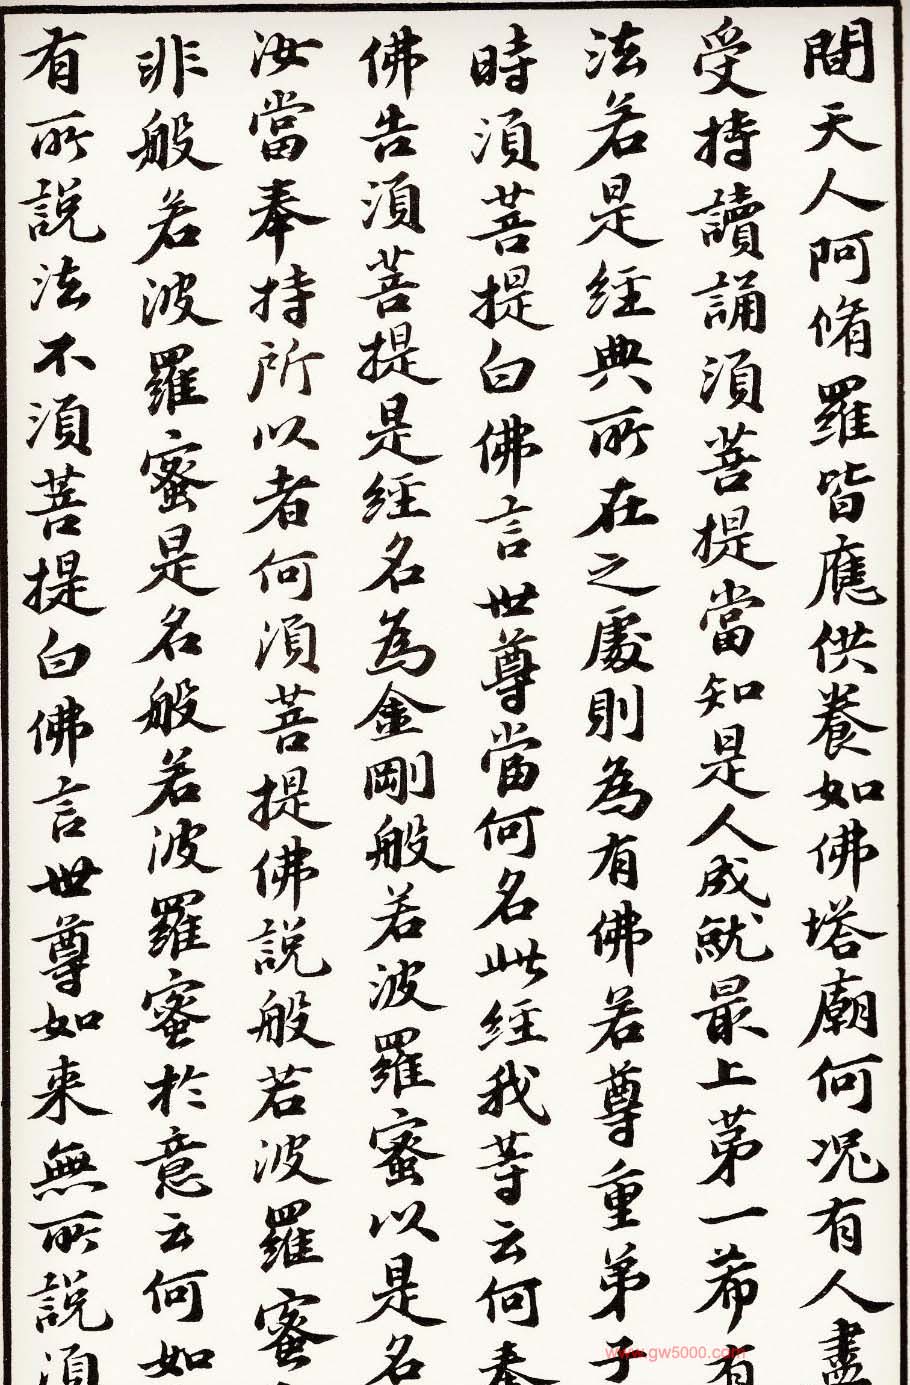 間天人阿脩羅皆應供養如佛塔廟何況有人盡
受持讀誦須菩提當知是人成就最上苐一希有
法若是經典所在之處則為有佛若尊重弟子
時須菩提白佛言世尊當何名此經我等云何奉
佛告須菩提是經名為金剛般若波羅蜜以是名
汝當奉持所以者何須菩提佛說般若波羅蜜
非般若波羅蜜是名般若波羅蜜於意云何如
有所說法不須菩提白佛言世尊如来無所說須
www.gw5000.com